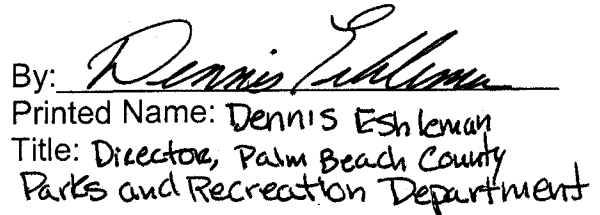 By: Dennis Eshleman
Printed Name: Dennis Eshleman
Title: Director, Palm Beach County
Parks and Recreation Department